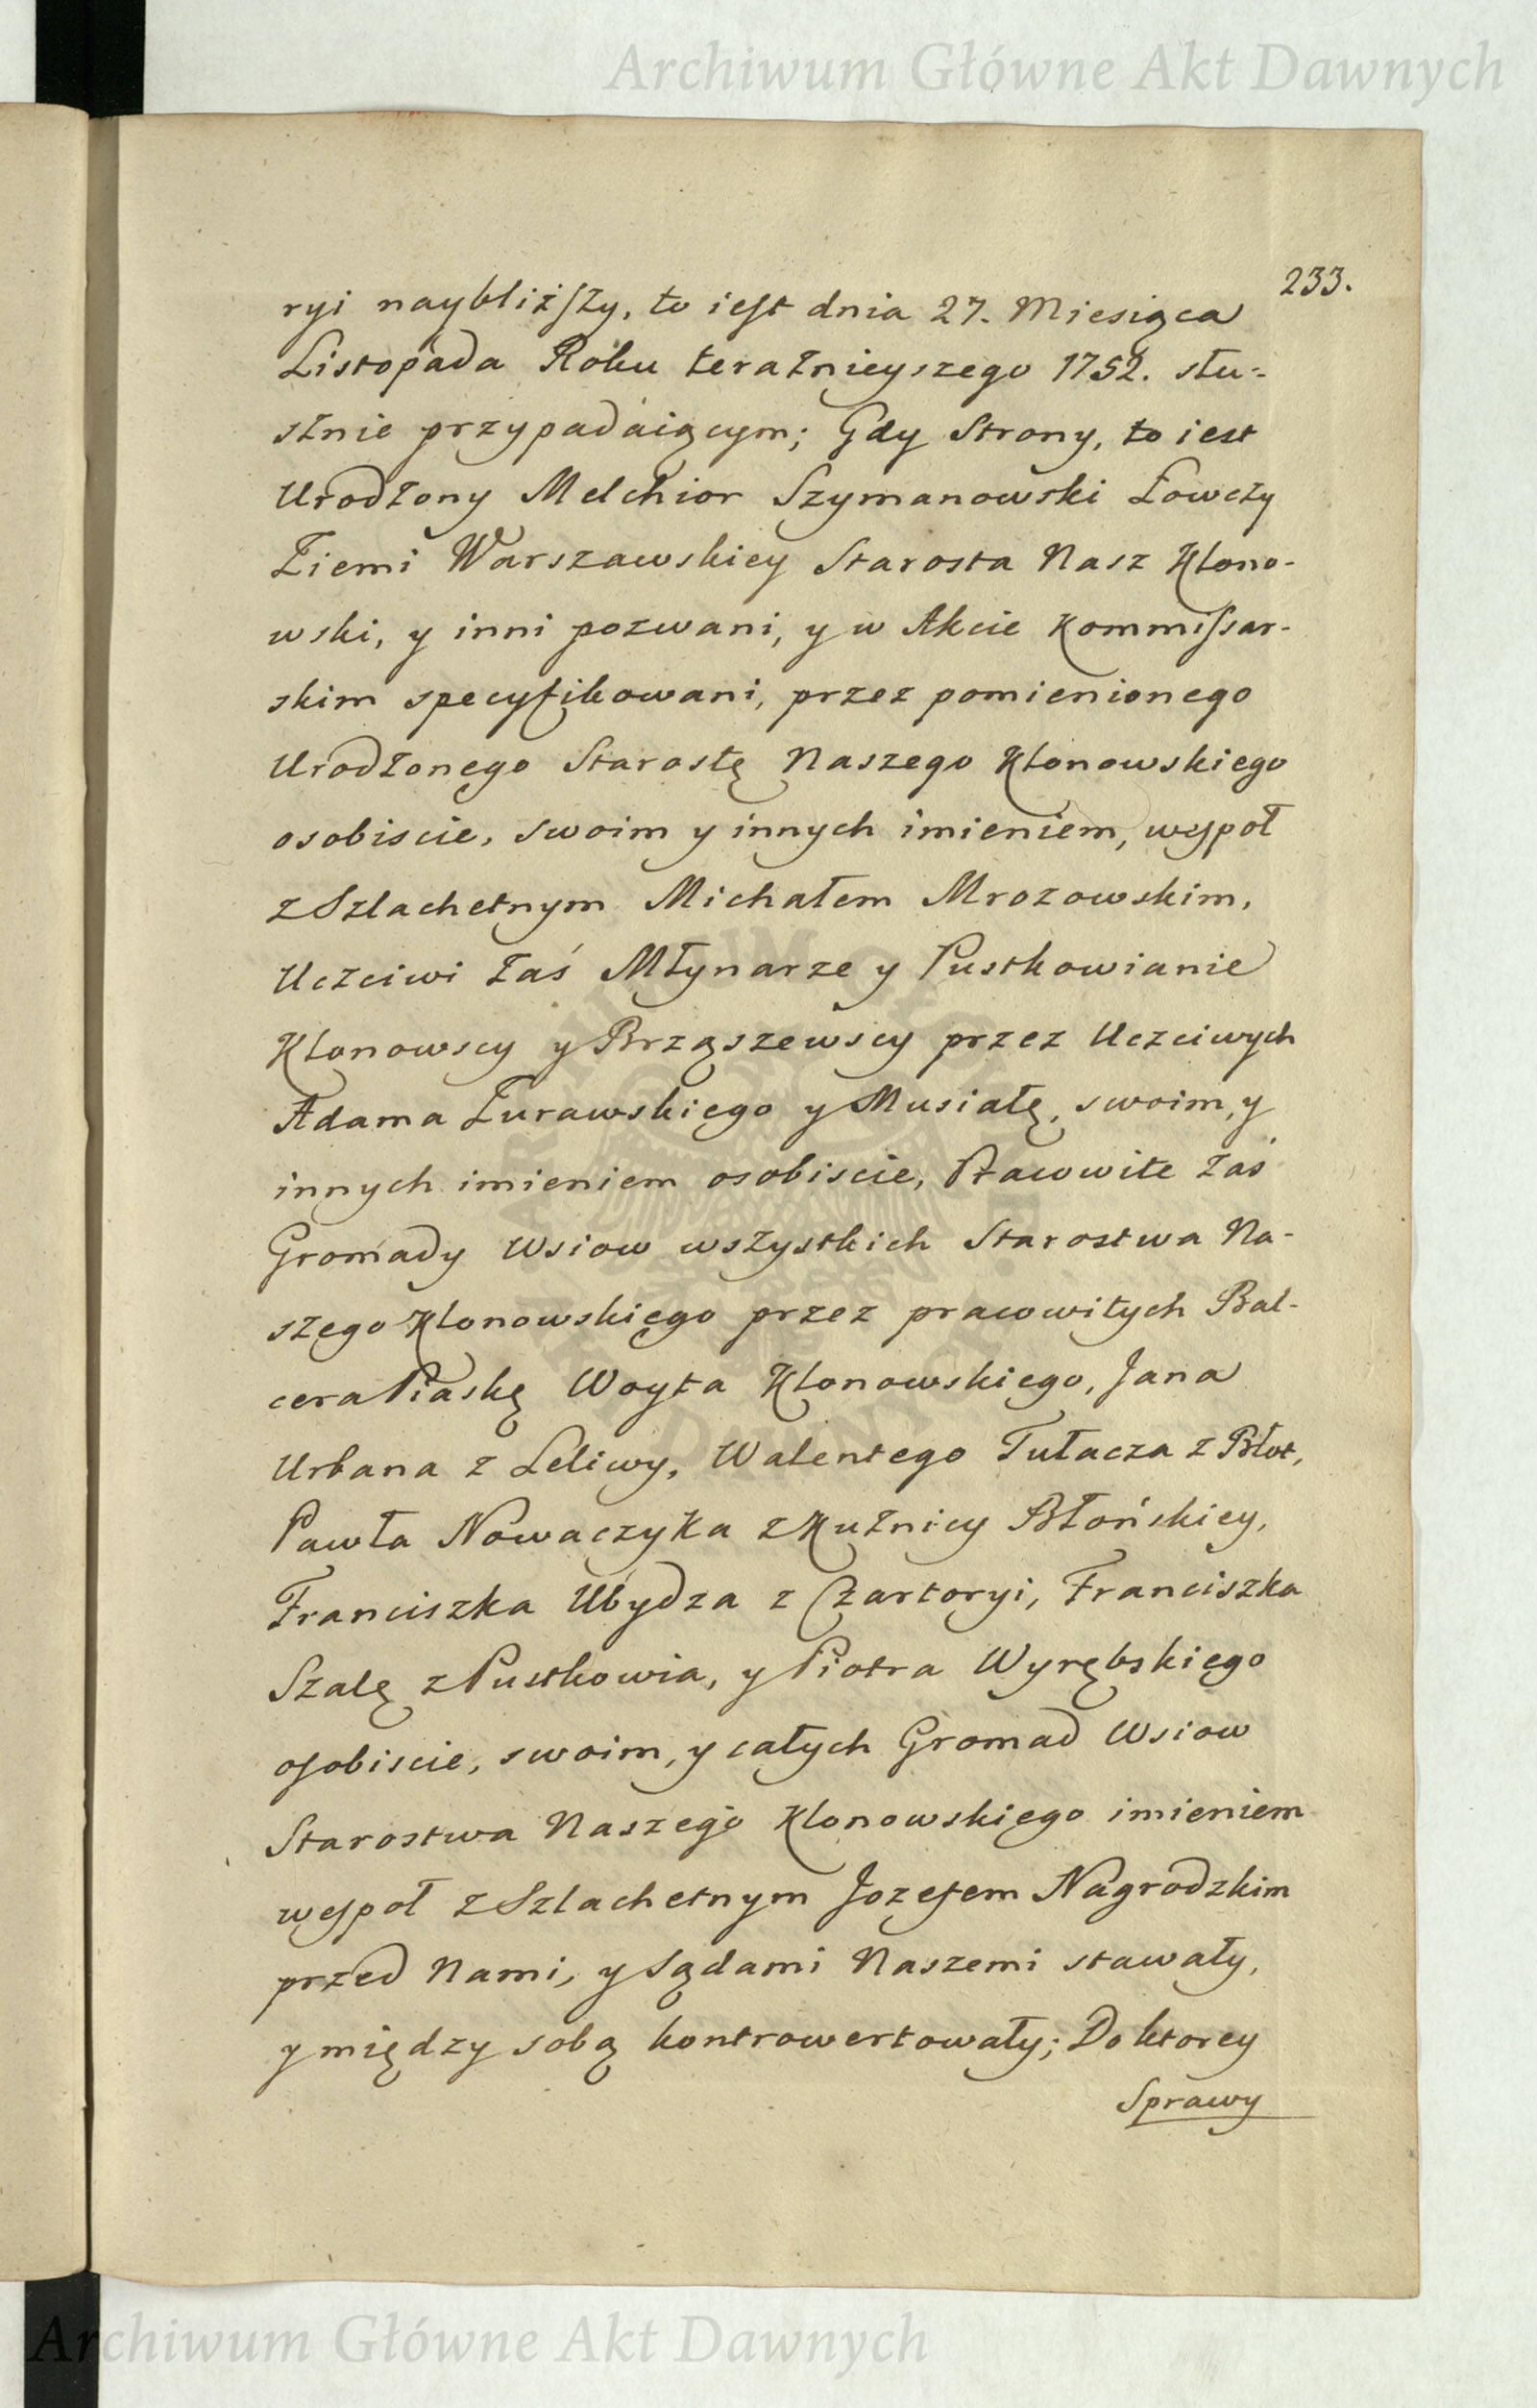 Archiwum Główne Akt Dawnych
233.
ryi naybliższy, to iest dnia 27. Miesiąca
Listopada Roku teraźnieyszego 1752. słu-
sznie przypadaiącym; Gdy Strony, to iest
Urodzony Melchior Szymanowski Łowczy
Ziemi Warszawskiey Starosta Nasz Klono-
wski, y inni pozwani, y w Akcie Kommissar-
skim specyfikowani, przez pomienionego
Urodzonego Starostę Naszego Klonowskiego
osobiscie, swoim y innych imieniem, wespoł
z Szlachetnym Michałem Mrozowskim,
Uczciwi zaś Młynarze y Pustkowianie
Klonowscy y Brząszewscy przez Uczciwych
Adama Żurawskiego y Musiałę, swoim, y
innych imieniem osobiscie, Pracowite zaś
Gromady Wsiow wszystkich Starostwa Na-
szego Klonowskiego przez pracowitych Bal-
cera Piaskę Woyta Klonowskiego, Jana
Urbana z Leliwy, Walentego Tułacza z Błot,
Pawła Nowaczyka z Kuźnicy Błońskiey,
Franciszka Ubydza z Czartoryi, Franciszka
Szalę z Pustkowia, y Piotra Wyrębskiego
osobiscie, swoim, y całych Gromad Wsiow
Starostwa Naszego Klonowskiego imieniem
wespoł z Szlachetnym Jozefem Nagrodzkim
przed Nami, y Sądami Naszemi stawały,
y między sobą kontrowertowały; Do ktorey
Sprawy
Archiwum Główne Akt Dawnych